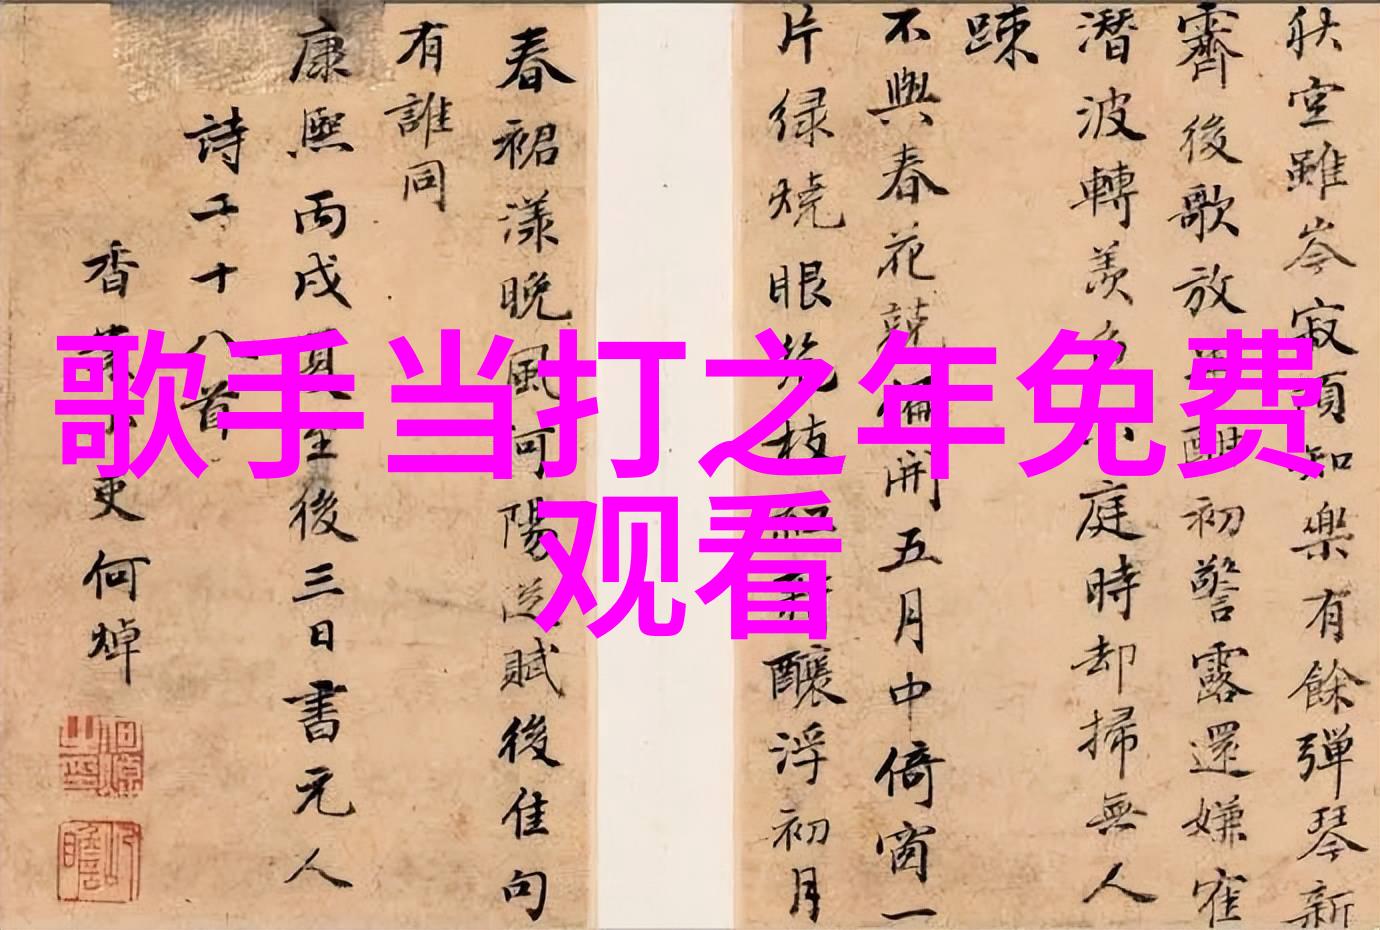 歌手当打之年免费
观看
秋室雖岑寂須知樂有餘弹琴新
霽後歌放
初警露還嫌宿
潜波轉羡
庭時却掃無人
踈
不與春花
開五月中倚窗一
片緑燒眼
枝
釀浮初月
春裙漾晚風河陽
賦後佳句
有誰同
康熙丙戌
後三日書元人
詩二十八首
香
吏何焯